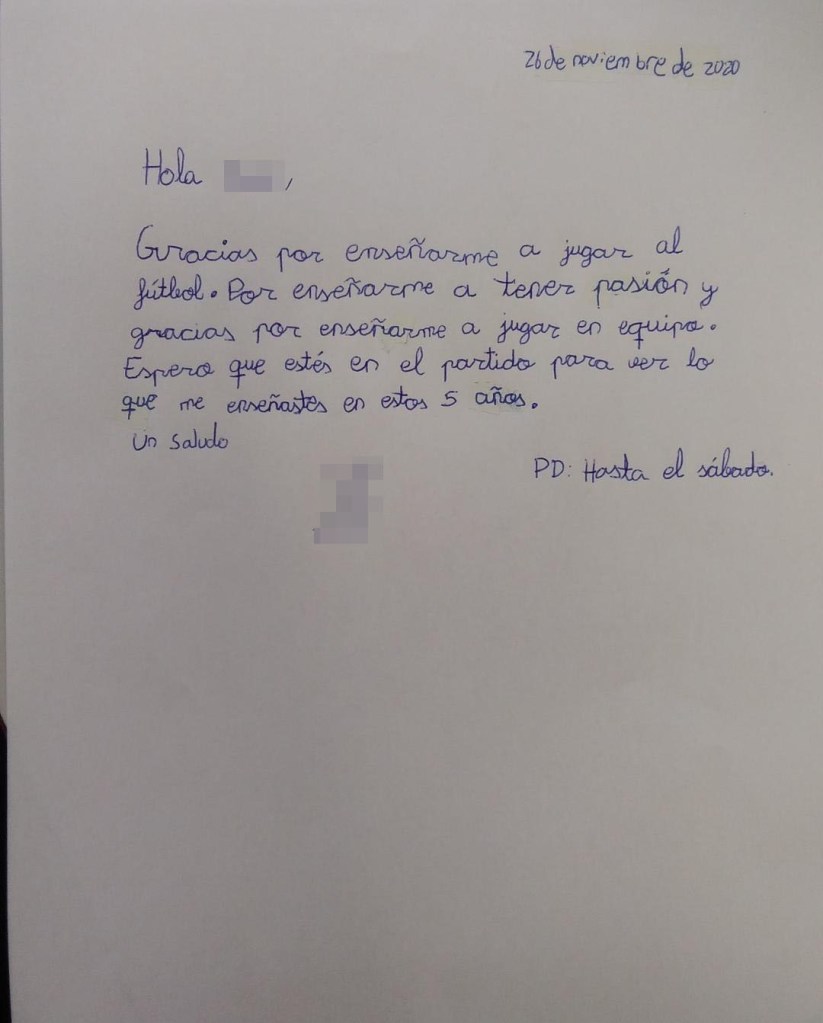 26 de noviembre de 2020
Hola ,
Gracias por enseñarme a jugar al
fútbol. Por enseñarme a tener pasión y
gracias por enseñarme a jugar en equipo.
Espero que estés en el partido para ver lo
que me enseñastes en estos 5 años.
Un saludo
PD: Hasta el sábado.